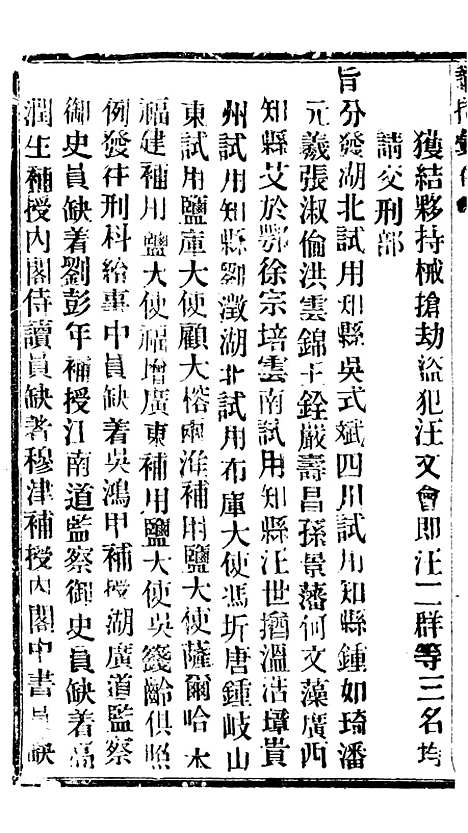 獲結夥持械搶劫盜犯汪文會即汪二群等三名均
請交刑部
旨分發湖北試用知縣吳式斌四川試用知縣鍾如琦潘
元羲張淑倫洪雲錦王銓嚴壽昌孫景藩何文藻廣西
知縣艾於鄂徐宗培雲南試用知縣汪世 溫沽璋貴
州試用知縣劉澂湖北試用布庫大使馮圻唐鍾岐山
東試用鹽庫大使顧大榕兩淮補用鹽大使薩爾哈
福建補用鹽大使福增廣東補用鹽大使吳籛齡俱照
例發往刑科給事中員缺着吳鴻甲補授湖廣道監察
御史員缺着劉彭年補授江南道監察御史員缺着高
潤生補授內閣侍讀員缺著穆津補授內閣中書員缺